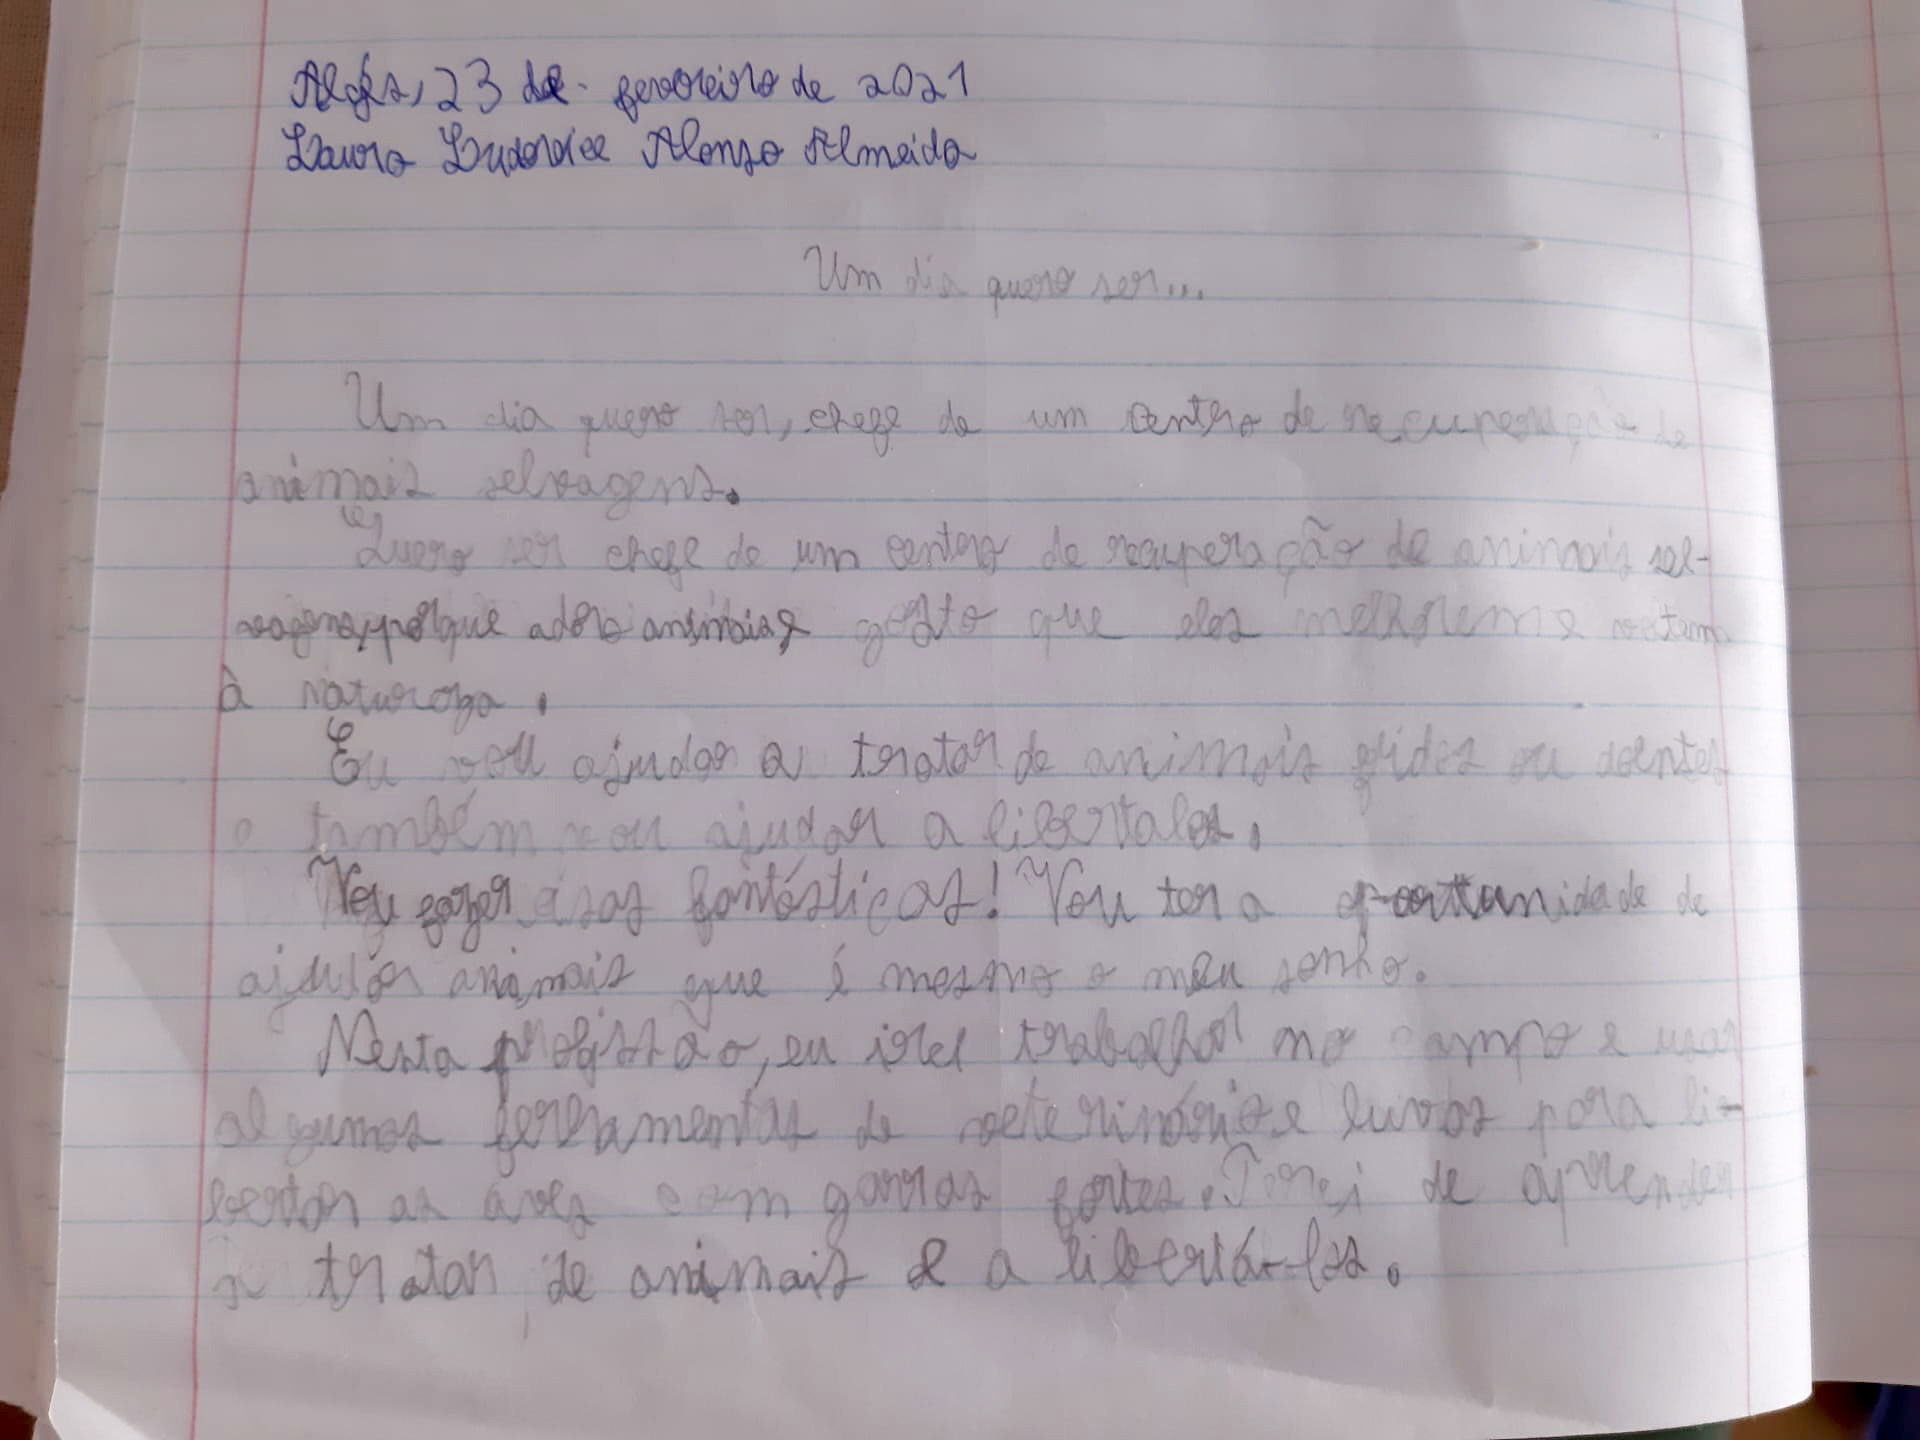 Algés, 23 de fevereiro de 2021
Laura Ludovice Alonso Almeida
Um dia quero ser...
Um dia quero ser, chefe de um centro de recuperação de
animais selvagens.
Quero ser chefe de um centro de recuperação de animais sel-
vagens, porque adoro animais e gosto que eles melhorem e voltam
à natureza.
Eu vou ajudar a tratar de animais fridos ou doentes
e também vou ajudar a libertalos.
Vou fazer fantásticas! Vou ter a oportunidade de
ajudar animais que é mesmo o meu sonho.
Nesta profissão, eu irei trabalhar no campo e usar
algumas ferramentas de veterinário e luvas para li-
bertar as aves com garras fortes. Terei de aprender
a tratar de animais e a libertá-los.